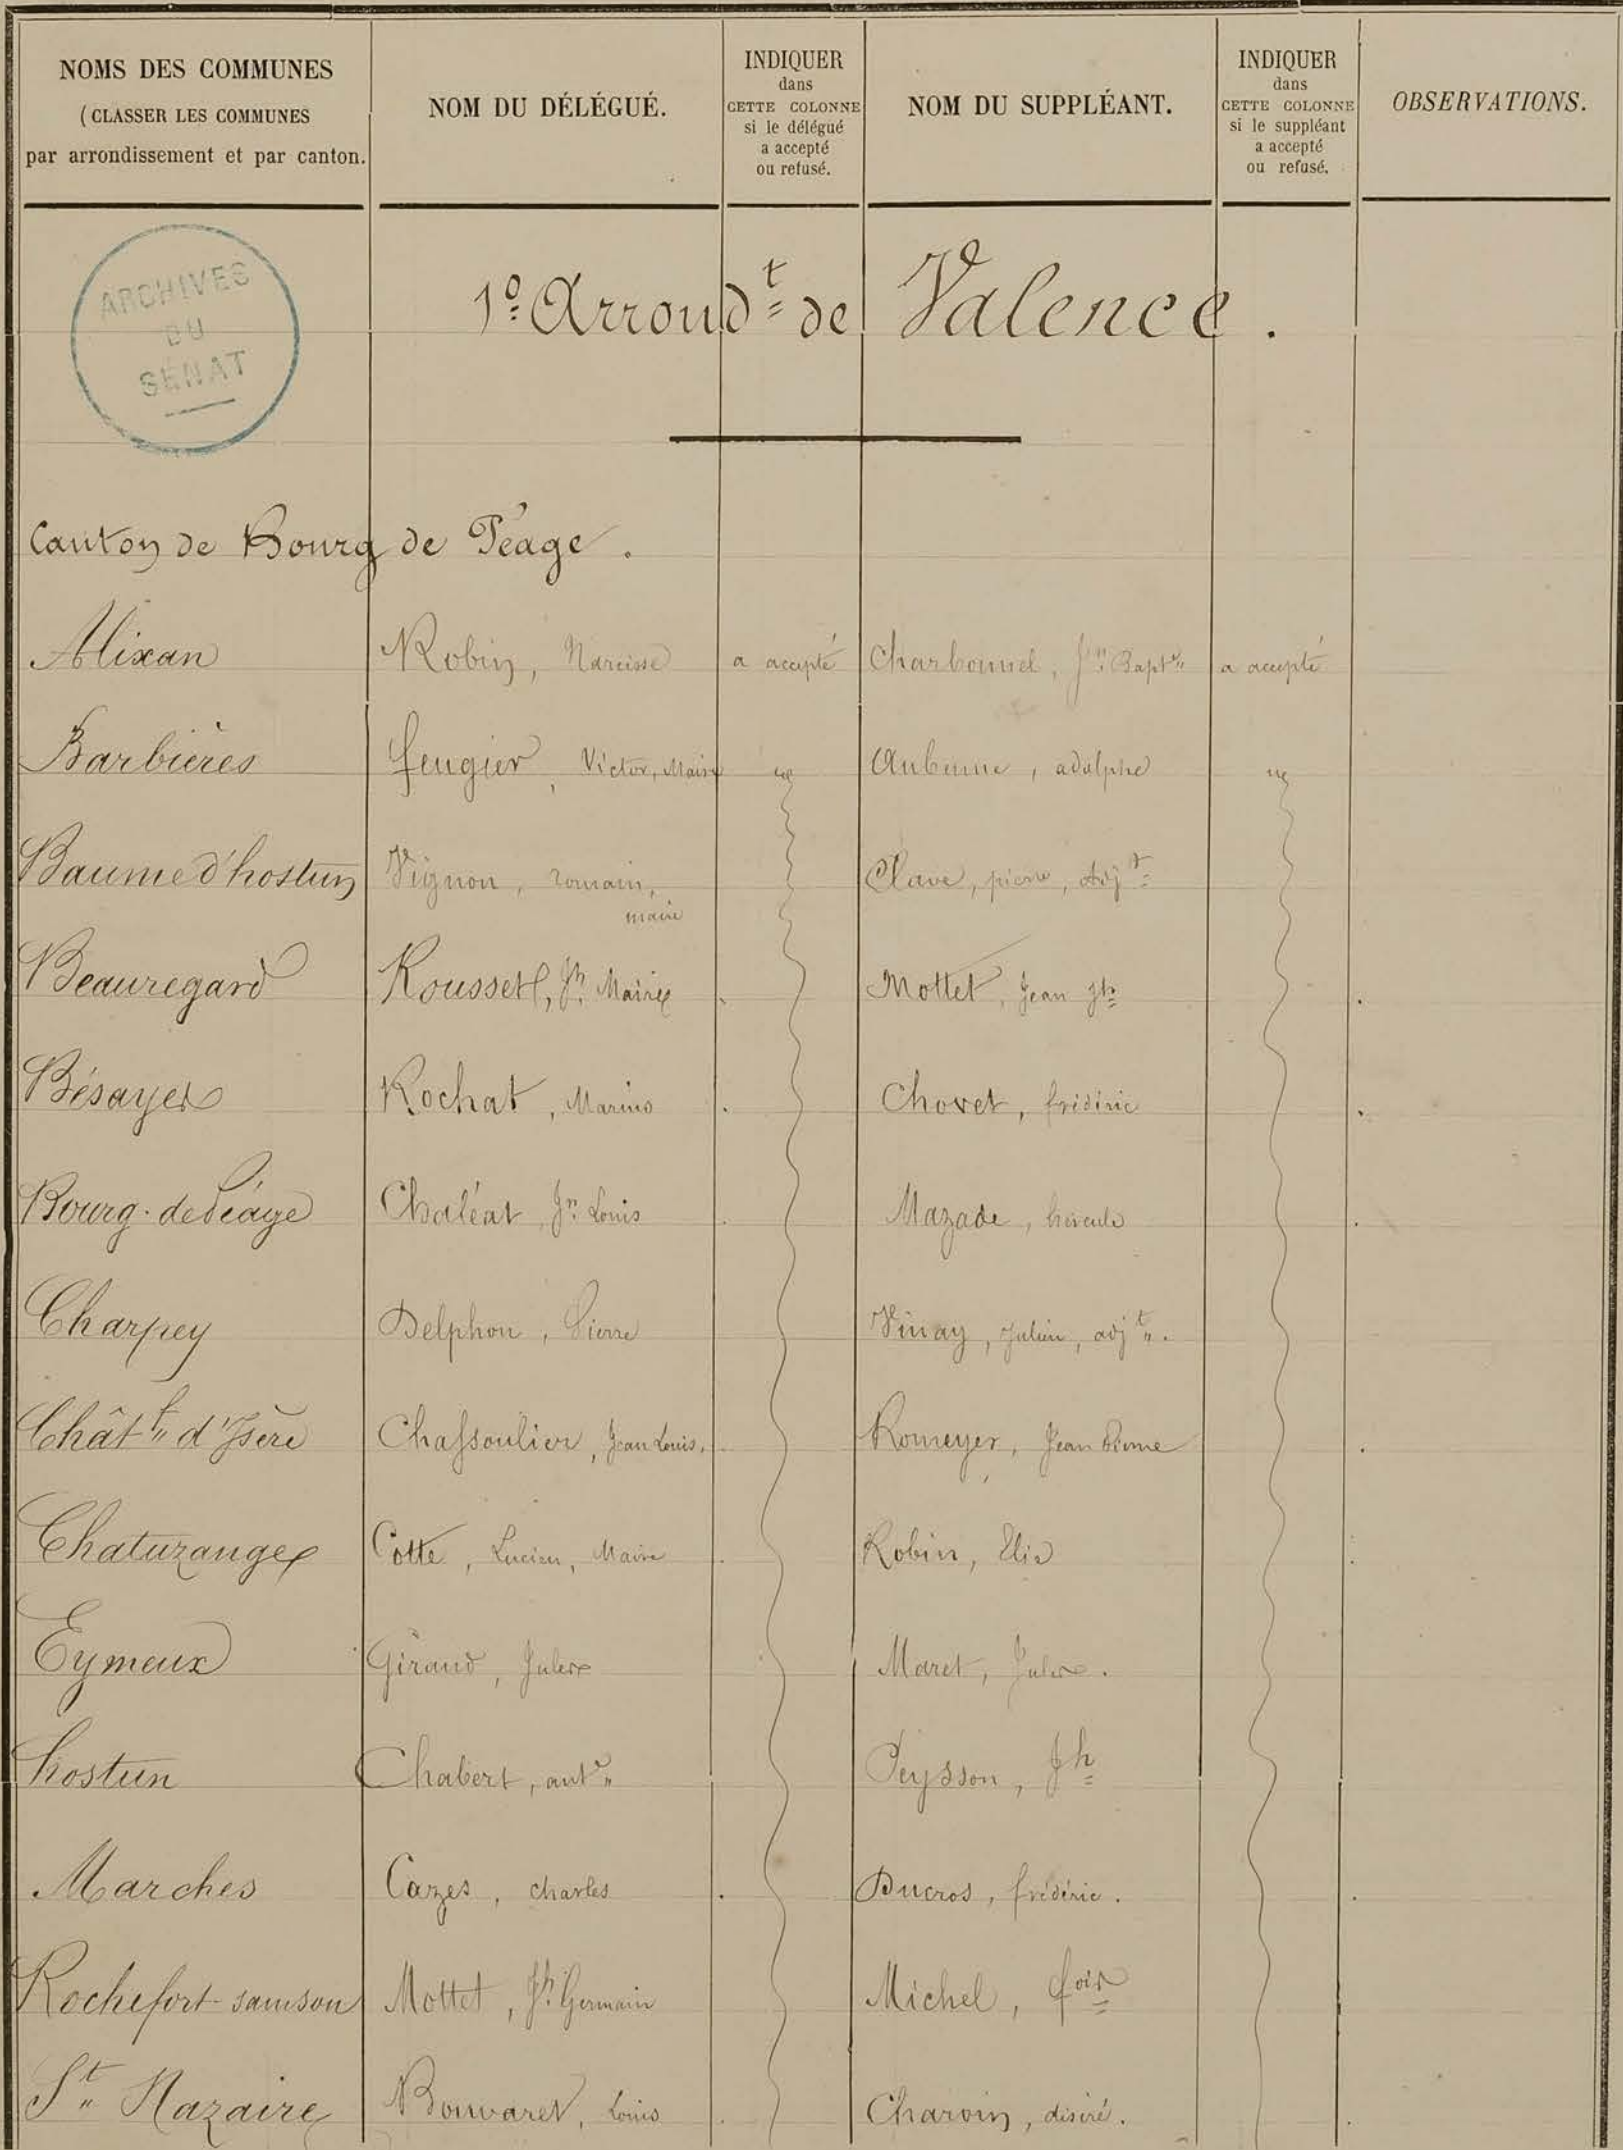 NOMS DES COMMUNES
(CLASSER LES COMMUNES
par arrondissement et par canton.
NOM DU DÉLÉGUÉ.
INDIQUER
dans
CETTE COLONNE
si le délégué
a accepté
ou refusé.
NOM DU SUPPLÉANT.
INDIQUER
dans
CETTE COLONNE
si le suppléant
a accepté
ou refusé.
OBSERVATIONS.
ARCHIVES
DU
SÉNAT
1º Arrondt de Valence.
Canton de Bourg de Péage.
Alixan Robin, Narcisse a accepté Charbonnel, Jn Bapte a accepté
Barbières feugier, Victor, Maire id Aubenne, adolphe id
Baume d'hostun Vignon, romain, Clave, pierre, Adjt
maire
Beauregard Rousset, Jh Maire Mottet, Jean Jh
Bésayes Rochat, Marius Chovet, frédéric
Bourg-de Péage Chaléat, Jn Louis Mazade, hercule
Charpey Delphon, Pierre Vinay, Julien, adjt.
Châtf d'Isère Chassoulier, Jean Louis. Romeyer, Jean Pierre
Chatuzange Cotte, Lucien, Maire Robin, Elie
Eymeux Giraud, Jules Maret, Jules.
hostun Chabert, ante Peysson, Jh
Marches Cazes, charles Ducros, frédéric.
Rochefort-samson Mottet, Jh Germain Michel, fois
St Nazaire Bouvaret, Louis Charvin, désiré.